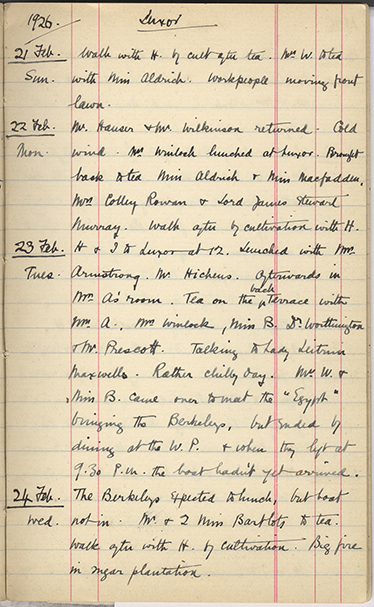 1926. Luxor
21 Feb. Walk with H. by cult after tea. Mr. W. to tea
Sun. with Miss Aldrich. Workpeople moving front
lawn.
22 Feb. Mr. Hauser & Mr. Wilkinson returned. Cold
Mon. wind. Mr. Winlock lunched at Luxor. Brought
back to tea Miss Aldrich & Miss Macfadden,
Mrs Colley Rowan & Lord James Stewart
Murray. Walk after by cultivation with H.
23 Feb. H & I to Luxor at 12. Lunched with Mrs.
Tues. Armstrong. Mr Hichens. Afterwards in
back
Mrs A's room. Tea on the terrace with
Mrs A., Mrs Winlock, Miss B. Dr. Worthington
& Mr Prescott. Talking to Lady Leitrim
Maxwells. Rather chilly day. Mr. W. &
Miss B. Came over to meet the "Egypt"
bringing the Berkeleys, but ended by
dining at the W. P. & when they left at
9.30 P.m. the boat hadn't yet arrived.
24 Feb. The Berkeleys expected to lunch, but boat
Wed. not in. Mr & 2 Miss Bartlots to tea.
Walk after with H. by cultivation. Big fire
in sugar plantation.